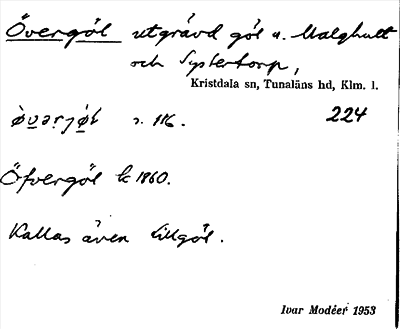 Övergöl utgrävd göl u. Malghult
och Systertorp,
Kristdala sn, Tunaläns hd, Klm. l.
224
s. 116.
Öfvergöl k 1860.
Kallas även Lillgöl.
Ivar Modéer 1953